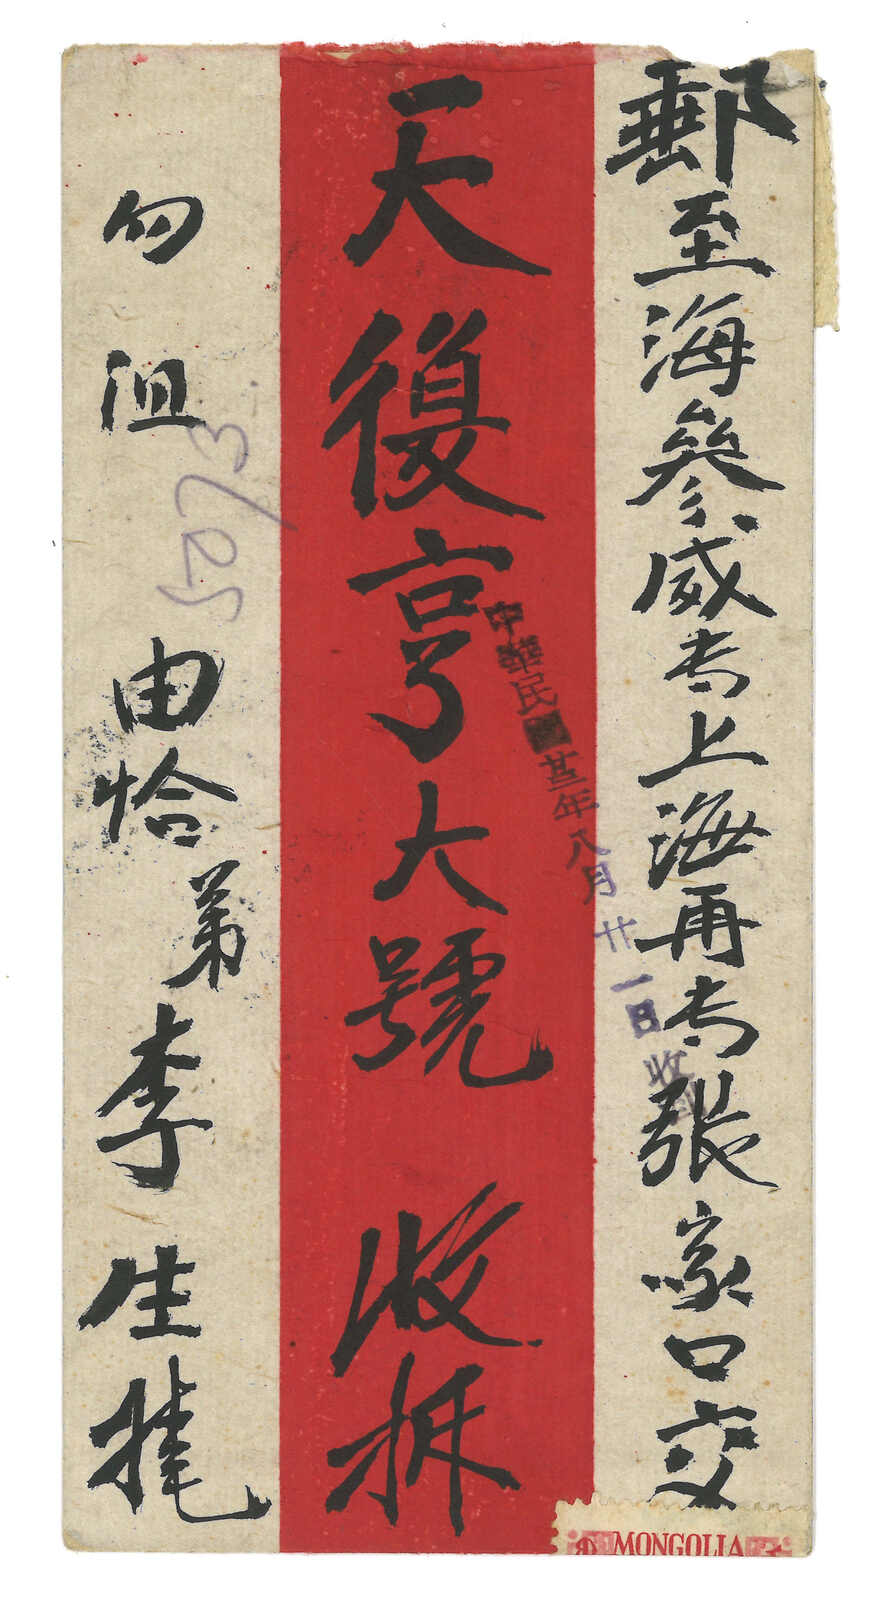 郵至海參威专上海再专張家口交
天復亨大號 收拆
勿 沮 由恰 弟 李 生
中華民國廿三年八月廿一日收到
5073
MONGOLIA